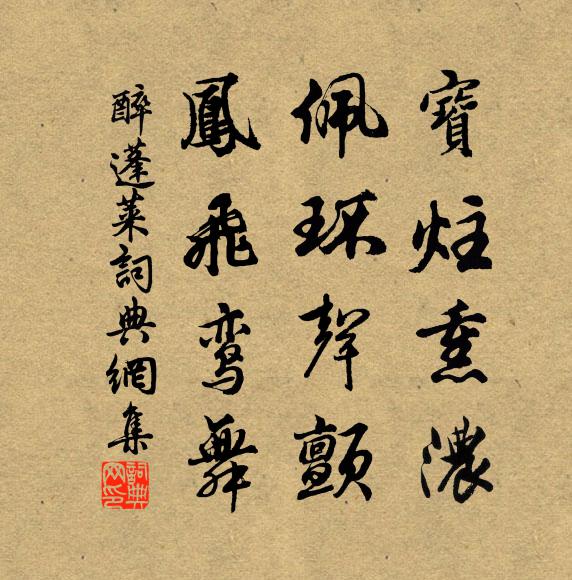 寶炷熏濃
佩环聲顫
鳳飛鸾舞
醉蓬萊詞典網集
詞典
网印